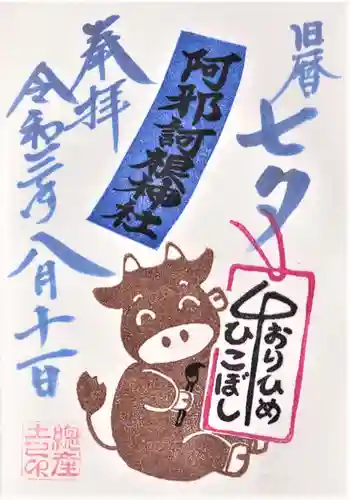 旧暦
七夕
阿邪訶根神社
奉拝
令和三年八月十一日
おりひめ
ひこぼし